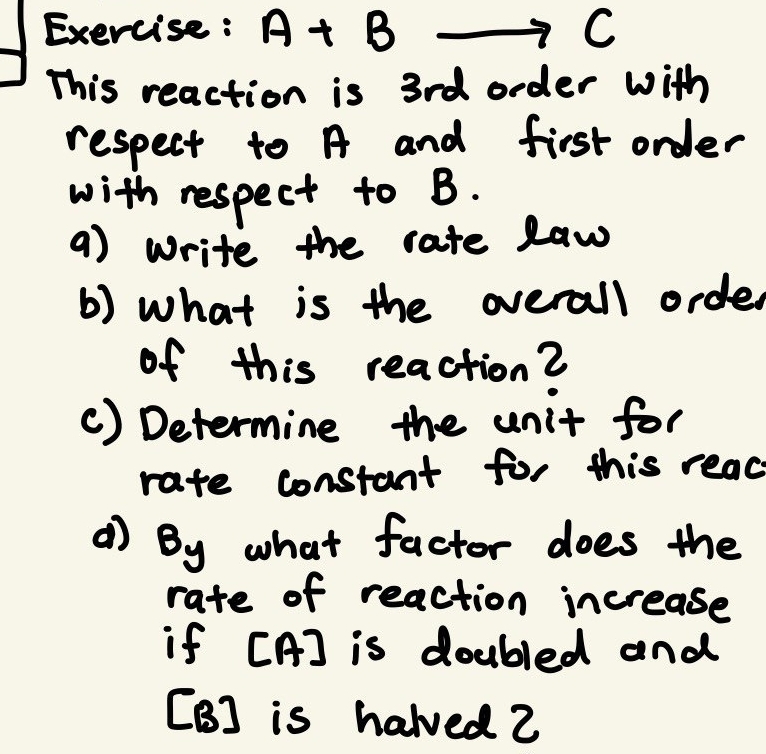 Exercise: A + B ⟶ C
This reaction is 3rd order with
respect to A and first order
with respect to B.
a) Write the rate law
b) What is the overall order
of this reaction?
c) Determine the unit for
rate constant for this reac
d) By what factor does the
rate of reaction increase
if [A] is doubled and
[B] is halved?